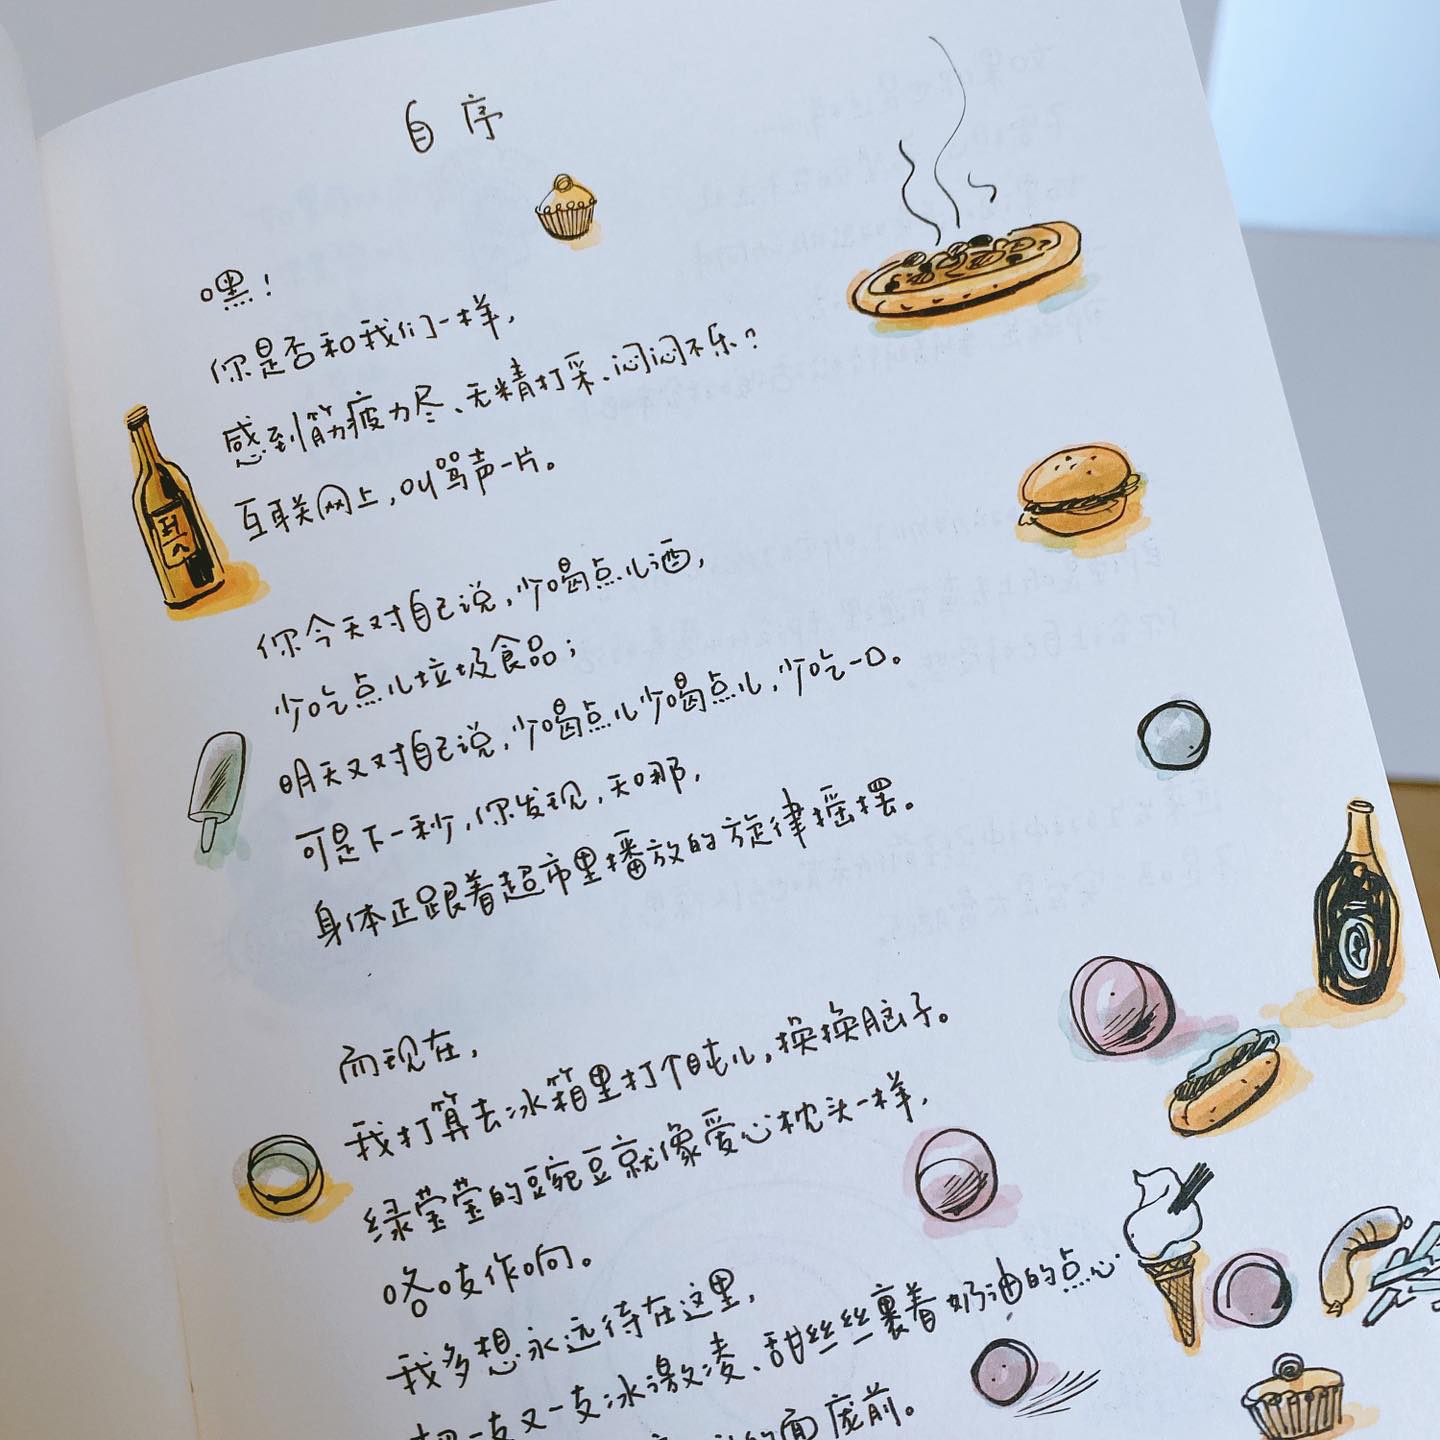 自序
嘿！
你是否和我们一样，
感到筋疲力尽、无精打采、闷闷不乐？
互联网上，叫骂声一片。
你今天对自己说，少喝点儿酒，
少吃点儿垃圾食品；
明天又对自己说，少喝点儿少喝点儿，少吃一口。
可是下一秒，你发现，天哪，
身体正跟着超市里播放的旋律摇摆。
而现在，
我打算去冰箱里打个盹儿，换换脑子。
绿莹莹的豌豆就像爱心枕头一样，
咯吱作响。
我多想永远待在这里，
把一支又一支冰激凌、甜丝丝裹着奶油的点心
的面庞前。